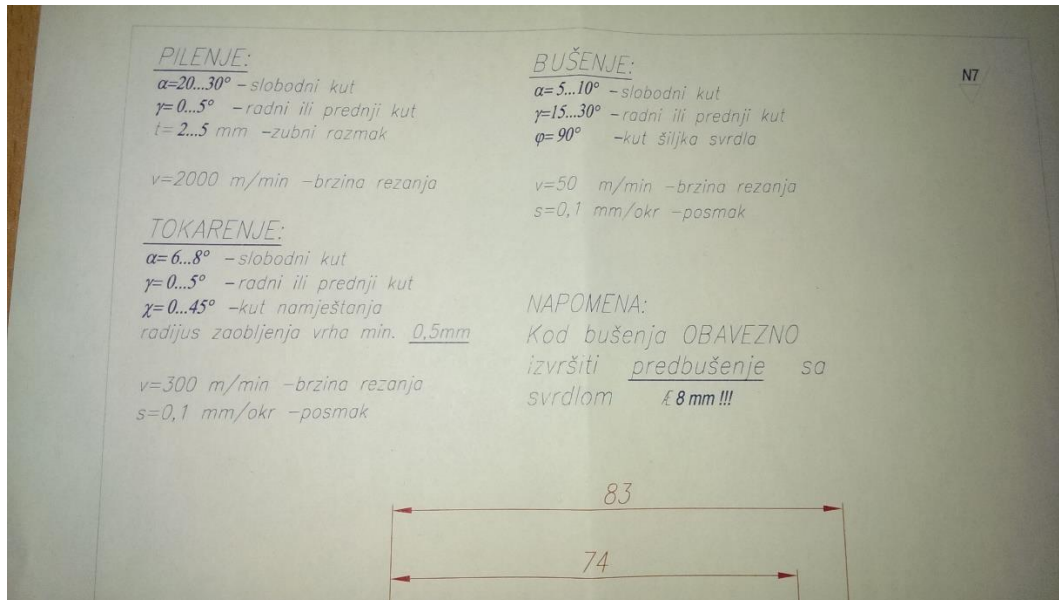 PILENJE:
α=20...30° –slobodni kut
γ= 0...5° –radni ili prednji kut
t= 2...5 mm –zubni razmak
v=2000 m/min –brzina rezanja
TOKARENJE:
α= 6...8° –slobodni kut
γ= 0...5° –radni ili prednji kut
χ= 0...45° –kut namještanja
radijus zaobljenja vrha min. 0,5mm
v=300 m/min –brzina rezanja
s=0,1 mm/okr –posmak
BUŠENJE:
α= 5...10° –slobodni kut
γ=15...30° –radni ili prednji kut
φ= 90° –kut šiljka svrdla
v=50 m/min –brzina rezanja
s=0,1 mm/okr –posmak
NAPOMENA:
Kod bušenja OBAVEZNO
izvršiti predbušenje sa
svrdlom Æ 8 mm !!!
N7
83
74